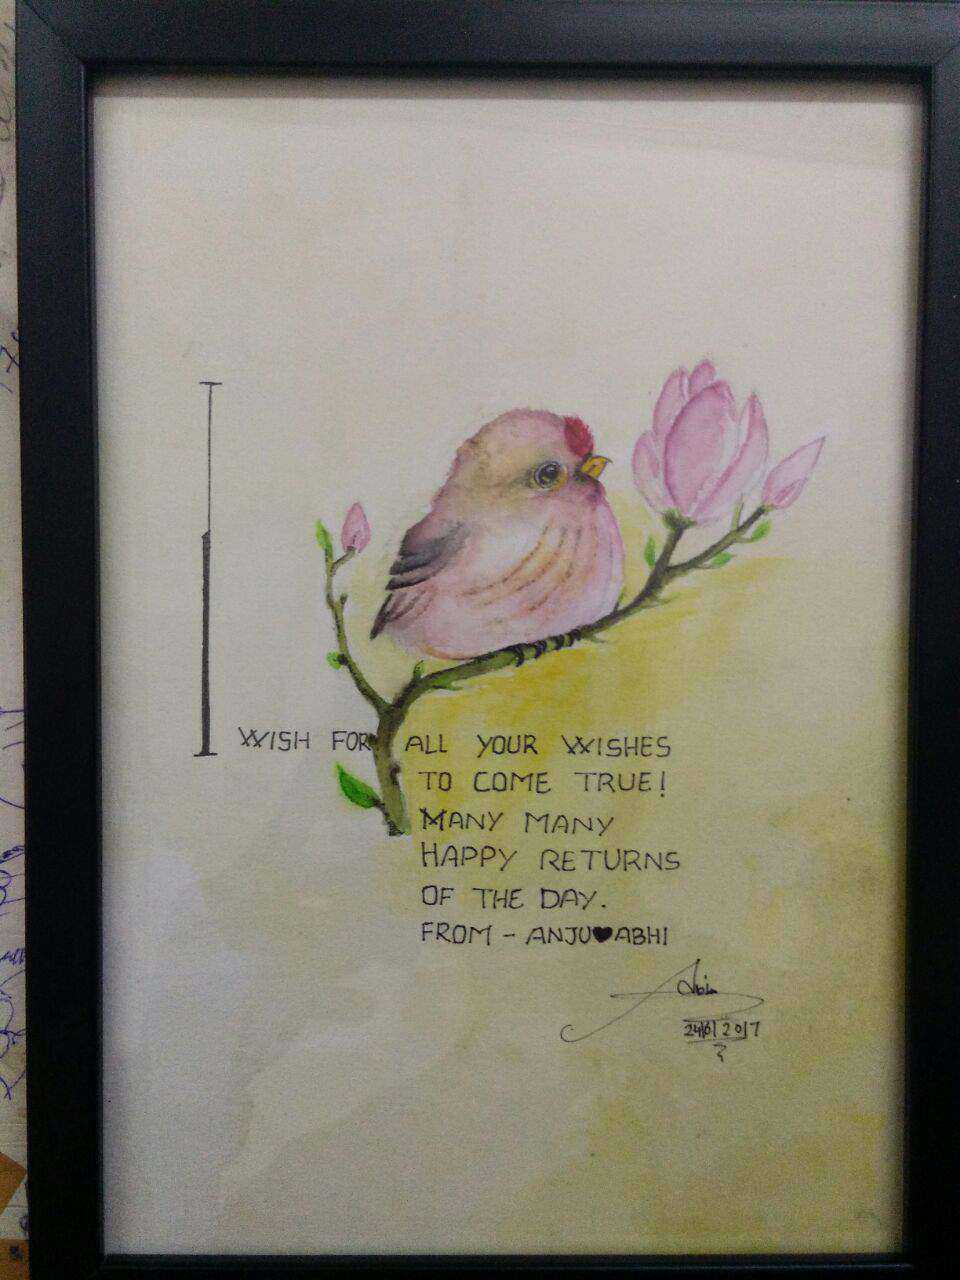 I WISH FOR ALL YOUR WISHES
TO COME TRUE!
MANY MANY
HAPPY RETURNS
OF THE DAY.
FROM - ANJU♥ABHI
24/6/2017